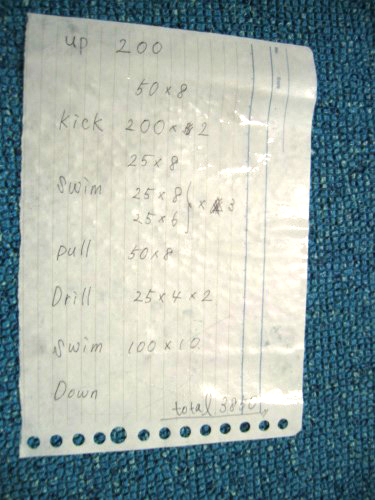 up 200
50×8
Kick 200×2
25×8
Swim 25×8
25×6 ×3
pull 50×8
Drill 25×4×2
Swim 100×10
Down
total 3850